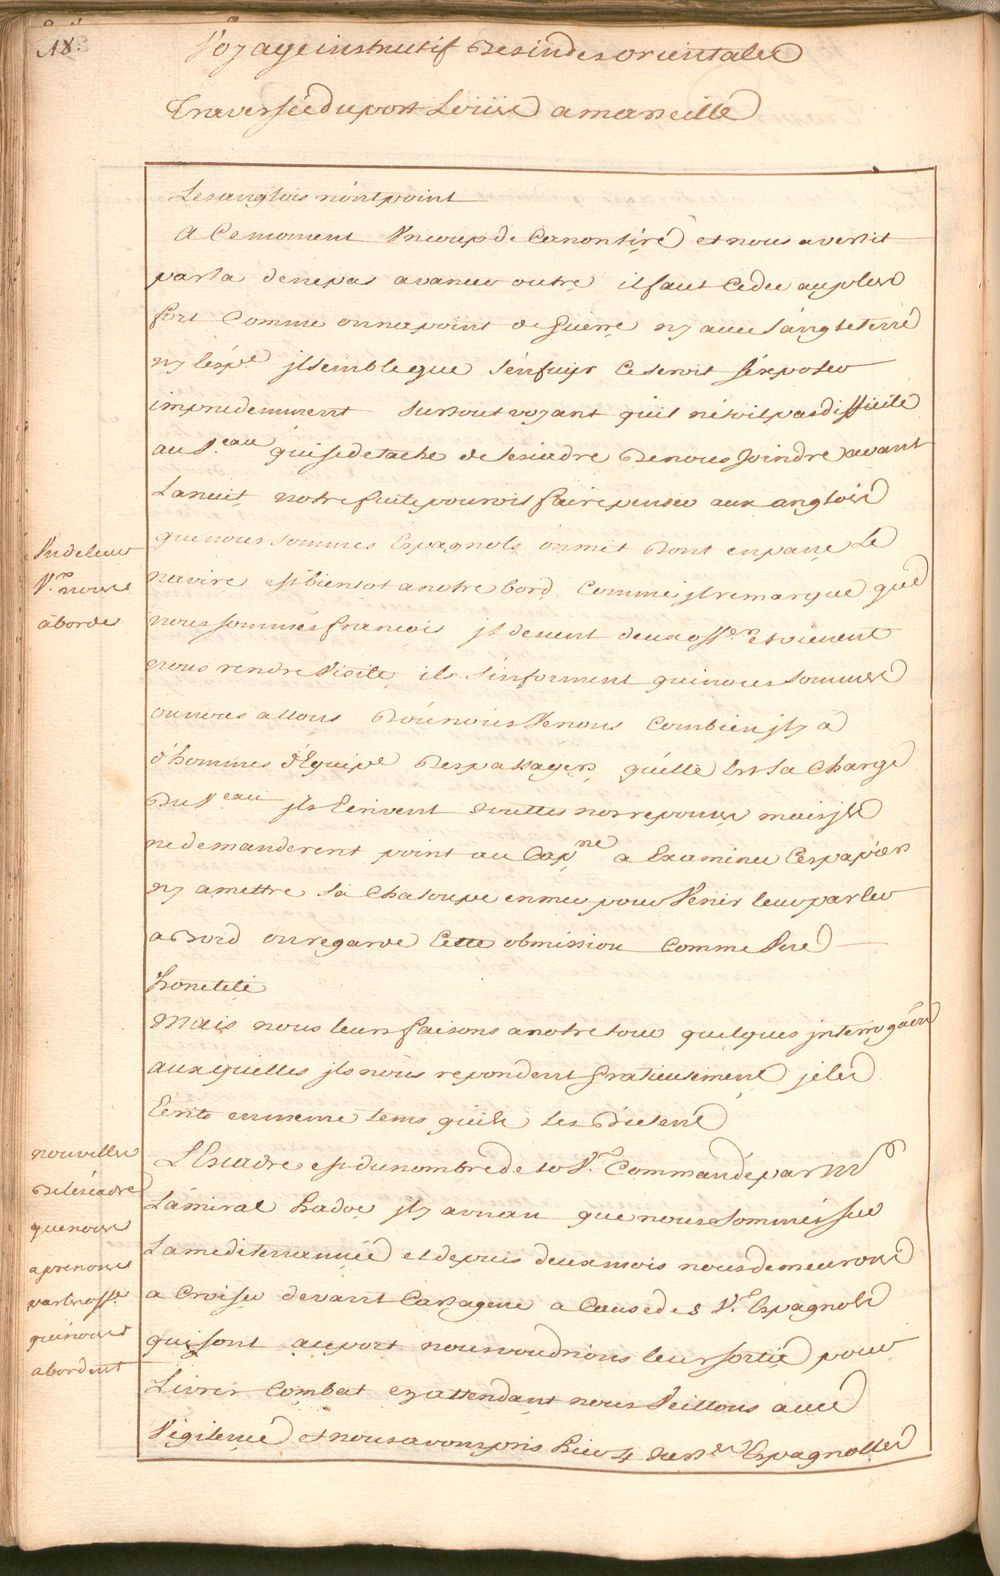 18.
Voyage instrutif Des indes orientales
Traversée du port Louis a marseille
Les anglois nónt point
A Ce moment Vn coup de Canon tiré et nous avertit
par la de ne pas avancer outre il faut Ceder au plus
fort Comme on na point de guerre ny avec L'angleterre
ny l'espe jl semble que s'enfuyr Ce seroit s'exposer
imprudemment sur tout voyant qu'il n'étoit pas difficile
au V.eau qui se detache de lescadre De nous Joindre avant
La nuit notre fuite pouroit faire penser aux anglois
que nous sommes Espagnols on mit Dont en pane Le
navire est bientot a notre bord Comme jl remarque que
nous sommes francois jl decent deux off.rs et vienent
nous rendre Visite ils s'informent qui nous sommes
ou nous allons D'ou nous Venons Combien jl y à
d'hommes d'Equipe Des passagers qu'elle Est la Charge
Du V.eau jls Ecrivent toutes nos reponses mais jls
ne demanderent point au Capne a Examiner Ces papiers
ny a mettre sa Chaloupe en mer pour Venir leur parler
a Bord on regarde Cette obmission Comme Vne
honeteté
Mais nous leurs faisons a notre tour quelques jnterrogaons
aux quelles jls nous repondent gratieusement je les
Ecrits en meme tems quils les Dictent
L'Escadre est du nombre de 10 V.x Commandé par Mr
L'amiral hadoc jl y a un an que nous sommes sur
La mediterrannée et depuis deux mois nous demeurons
a Croiser devant Cartagene a Cause de 8 V.x Espagnols
qui sont au port nous voudrions leur sortie pour
Livrer Combat en attendant nous Veillons avec
Vigilence et nous avons pris hier 4 Espagnolles
Vn de leur
V.x nous
aborde
nouvelles
De lescadre
que nous
aprenons
par les off.rs
qui nous
abordent